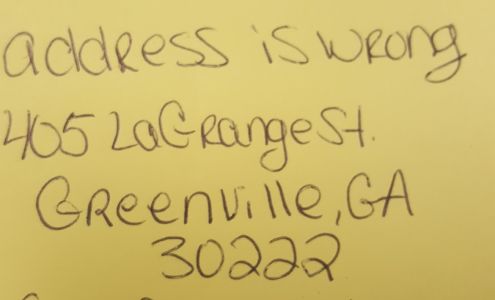 address is wrong
405 LaGrange St.
Greenville, GA
30222